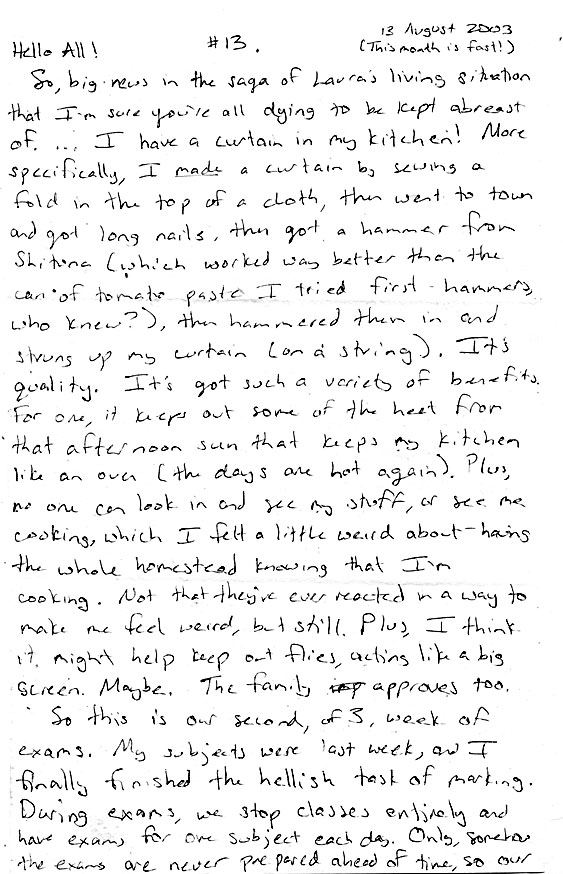 13 August 2003
Hello All! #13. (This month is fast!)
So, big news in the saga of Laura's living situation
that I'm sure you're all dying to be kept abreast
of. ... I have a curtain in my kitchen! More
specifically, I made a curtain by sewing a
fold in the top of a cloth, then went to town
and got long nails, then got a hammer from
(which worked way better than the
can of tomato paste I tried first - hammers,
who knew?), then hammered them in and
strung up my curtain (on a string). It's
quality. It's got such a variety of benefits.
For one, it keeps out some of the heat from
that afternoon sun that keeps my kitchen
like an oven (the days are hot again). Plus,
no one can look in and see my stuff, or see me
cooking, which I felt a little weird about - having
the whole homestead knowing that I'm
cooking. Not that they've ever reacted in a way to
make me feel weird, but still. Plus, I think
it might help keep out flies, acting like a big
screen. Maybe. The family approves too.
So this is our second, of 3, week of
exams. My subjects were last week, and I
finally finished the hellish task of marking.
During exams, we stop classes entirely and
have exams for one subject each day. Only, somehow
the exams are never prepared ahead of time, so our